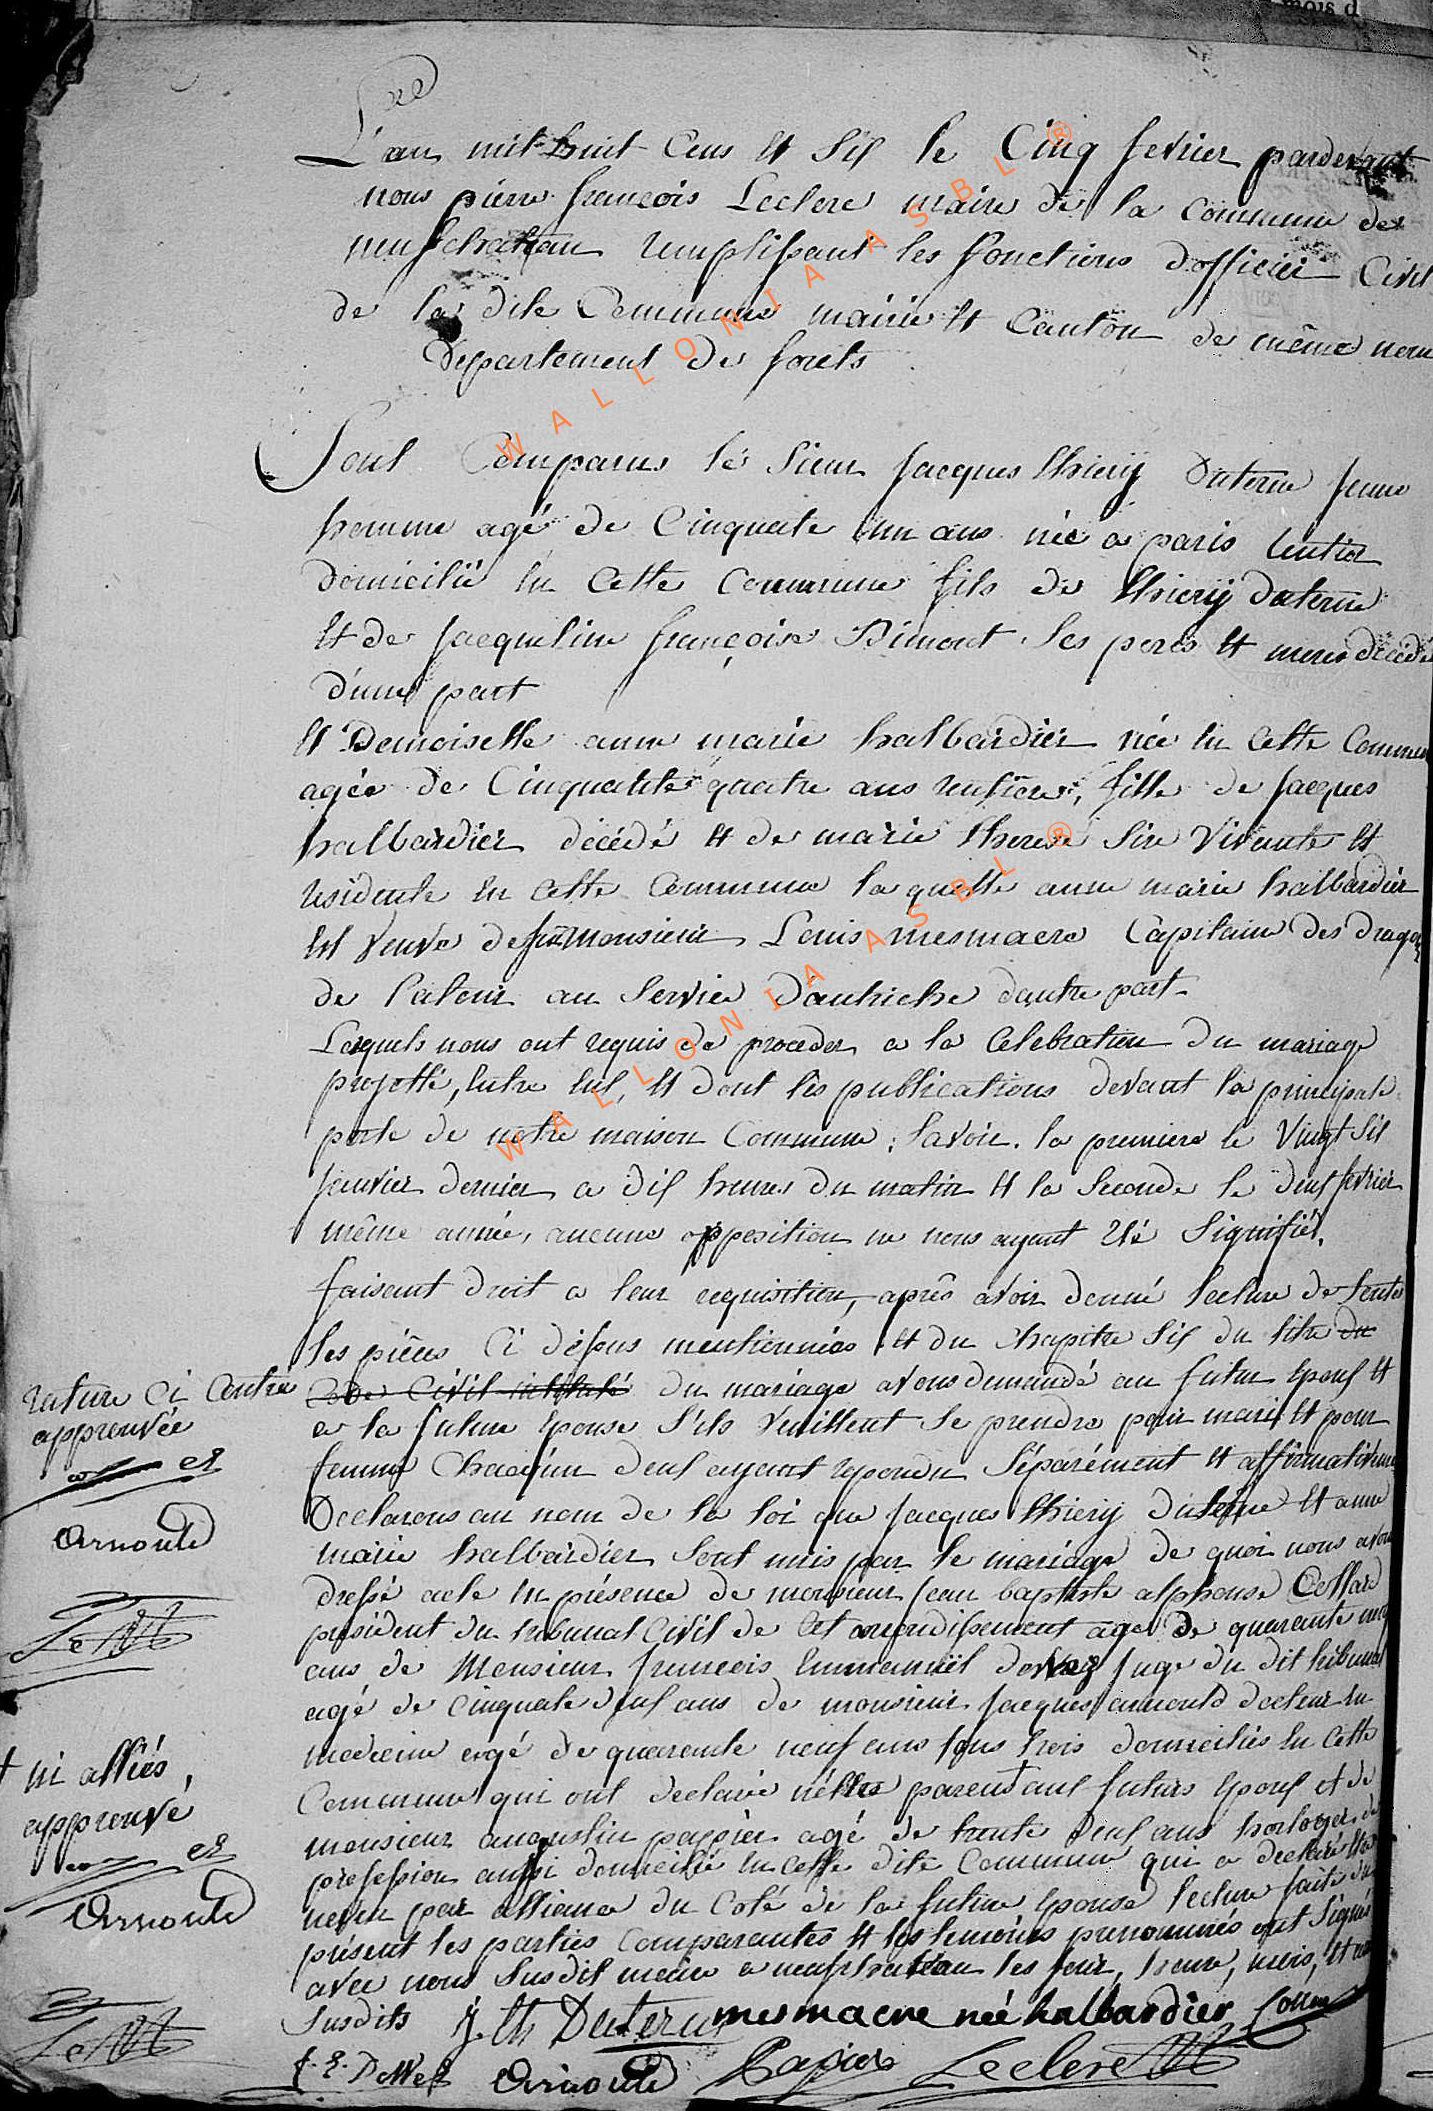 mois d
L'an mil huit cens et six le Cinq fevrier pardevant
nous pierre françois Leclere maire de la commune de
neufchateau remplissant les fonctions d'officier Civil
de la dite Commune mairie et Canton de même nom
departement de forets
Sont Comparus le sieur Jacques thiery Duterne jeune
homme agé de Cinquante un ans née a paris rentier
domicilié en cette commune fils de thiery Duterne
et de jacqueline françoise Dimont ses peres et meres décédé
d'une part
et Demoiselle anne marie halbardier née en cette Commune
agée de Cinquante quatre ans rentiere, fille de jacques
halbardier décédé et de marie therese Sire vivante et
residente en cette Commune la quelle anne marie halbardier
est veuve de feu monsieur Louis mesmacre Capitaine des dragons
de Latour au service d'autriche d'autre part
Lesquels nous ont requis de proceder a la Celebration du mariage
projetté, entre eux, et dont les publications devant la principale
porte de notre maison Commune; savoir. la premiere le vingt six
janvier dernier a dix heures du matin et la Seconde le deux fevrier
même année, aucune opposition ne nous ayant été signifié,
faisant droit a leur requisition, après avoir donné lecture de toutes
les pièces Ci dessus mentionnées et du chapitre six du titre du
Code Civil intitulé du mariage avons demandé au futur epoux et
a la future epouse s'ils veuillent se prendre pour mari et pour
femme Chacun d'eux ayant repondu séparément et affirmativement
Declarons au nom de la loi que jacques thiery duterne et anne
marie halbardier sont unis par le mariage de quoi nous avons
dressé acte en présence de monsieur jean baptiste alphonse Collard
président du tribunal Civil de cet arrondissement agé de quarante
ans de Monsieur françois Emmanuël dewez juge du dit tribunal
agé de cinquante deux ans de monsieur jacques arnould docteur en
medecine agé de quarante neuf ans tous trois domiciliés en cette
Commune qui ont declaré n'être parent + aux futurs epoux et de
monsieur augustin papier agé de trente deux ans horloger de
profession aussi domicilié en cette dite Commune qui a declaré être
neveu par alliance du coté de la future epouse lecture faite du
présent les parties comparantes et les temoins prenommés ont signés
avec nous susdit maire a neufchateau les jour, heure, mois, et an
susdits J. th Duterne mesmacre née halbardier Collard
f. E. DeWez Arnould Papier Leclere
rature ci contre
approuvée
Arnould
+ ni alliés,
approuvé
Arnould
WALLONIA ASBL ®
WALLONIA ASBL ®